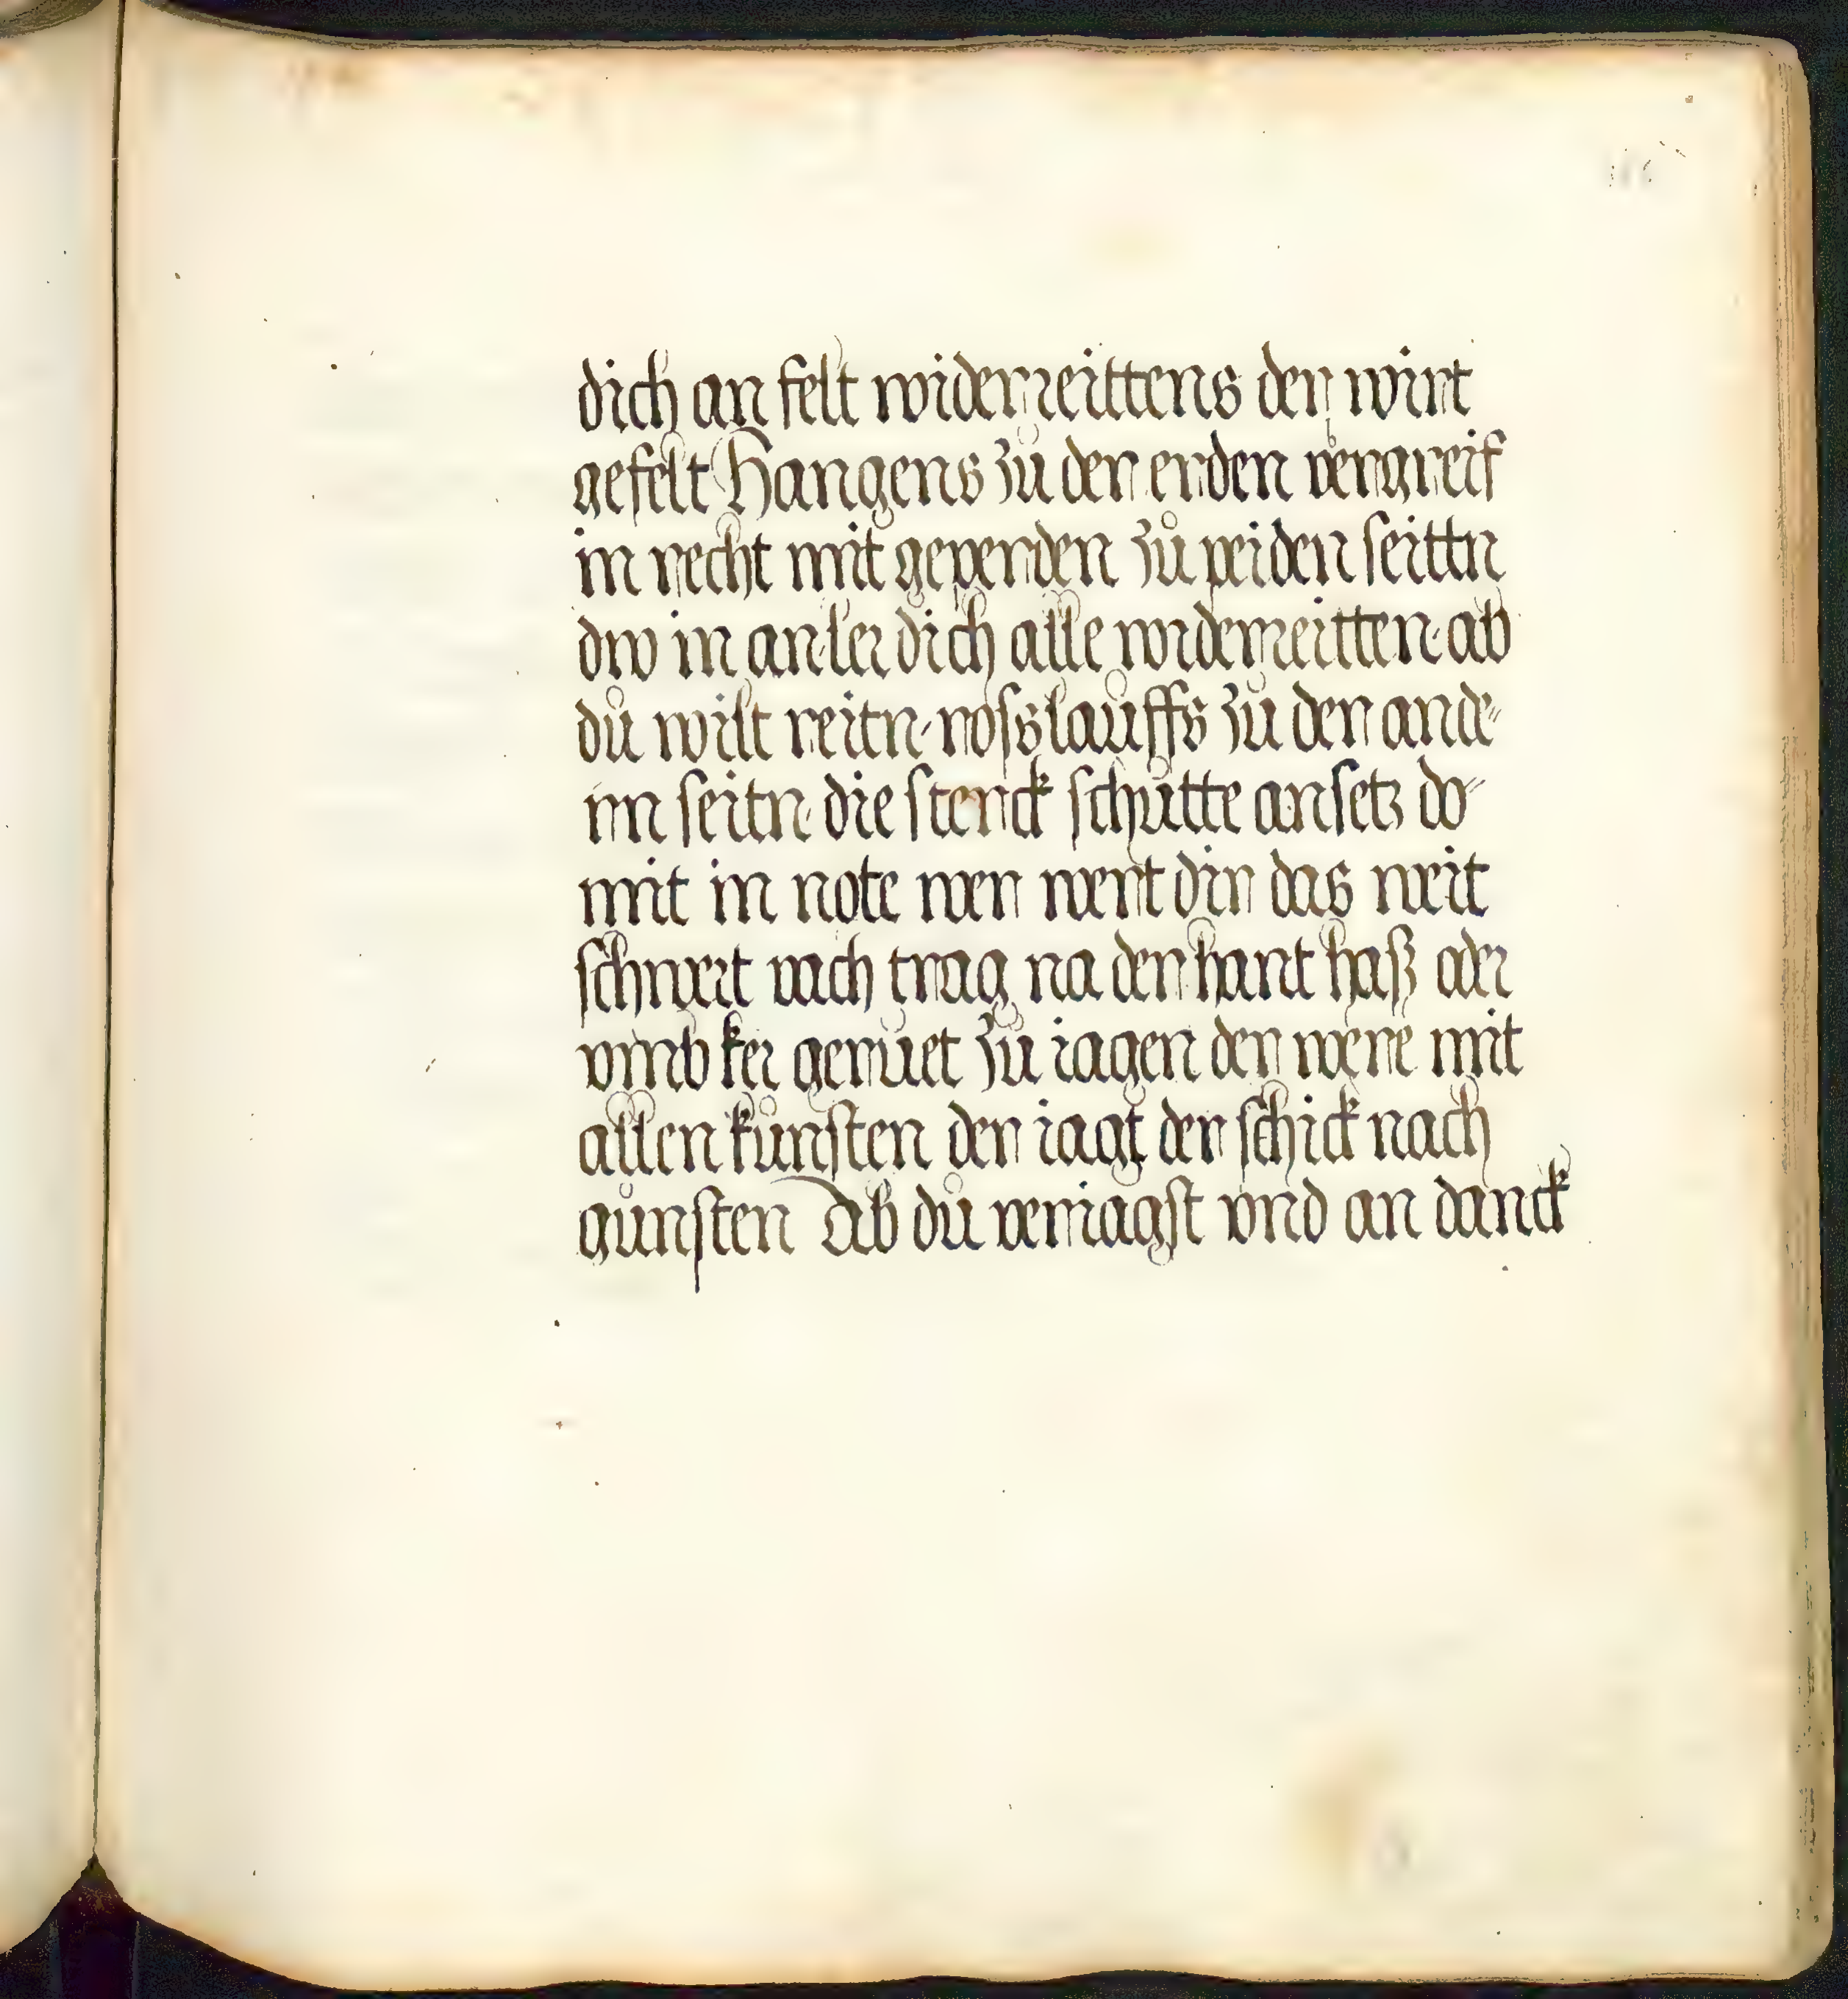 dich an felt widerreittens der wirt
gefelt Hangens zů der erden vergreif
in recht mit geperden zů peiden seittn
drw in an ler dich alle widerreitten ab
dů wilt reitn roſslauffs zů der ande
rn seitn die sterck schutte an setz do
mit in note wer wert dir das weit
schwert vach trag na der hant haß oder
vmb ker gerüet zů iagen der were mit
allen künsten der iagt der schick nach
günsten Ab dů veriagst vnd an danck